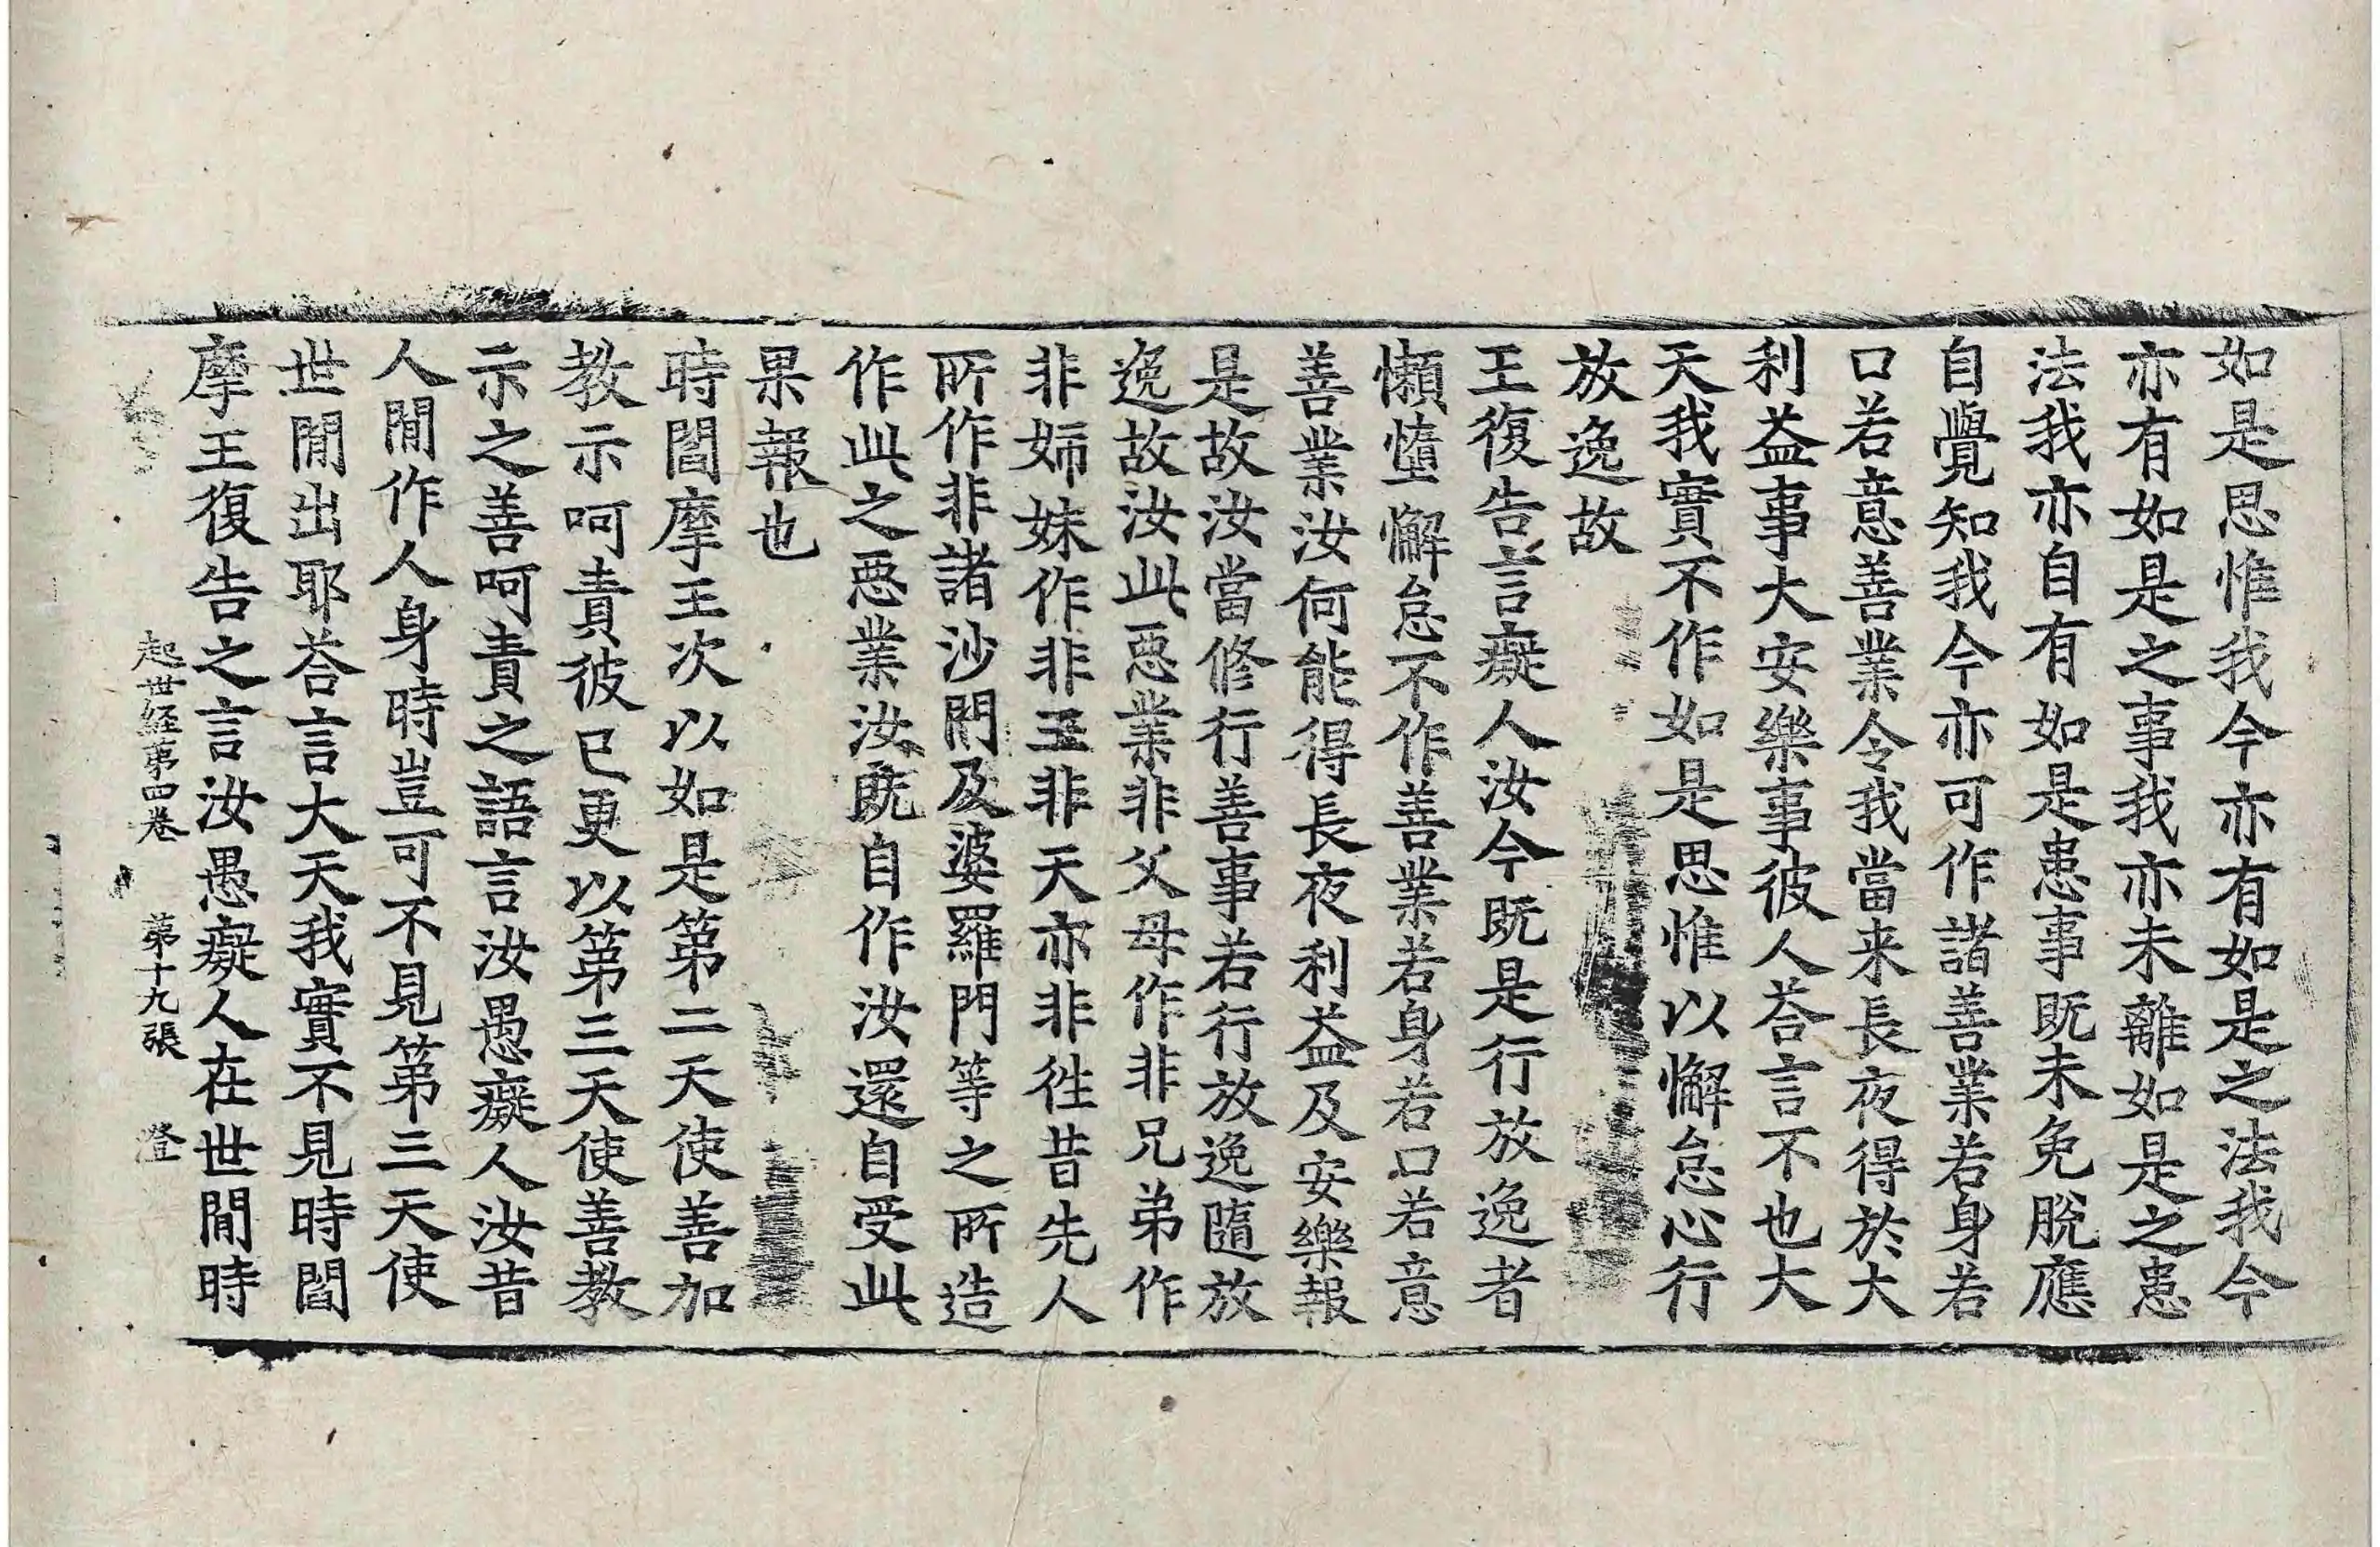 如是思惟我今亦有如是之法我今
亦有如是之事我亦未離如是之患
法我亦自有如是患事既未免脫應
自覺知我今亦可作諸善業若身若
口若意善業令我當来長夜得於大
利益事大安樂事彼人荅言不也大
天我實不作如是思惟以懈怠心行
放逸故
王復告言癡人汝今既是行放逸者
懶墮懈怠不作善業若身若口若意
善業汝何能得長夜利益及安樂報
是故汝當修行善事若行放逸隨放
逸故汝此惡業非父母作非兄弟作
非姉妹作非王非天亦非徃昔先人
所作非諸沙門及婆羅門等之所造
作此之惡業汝既自作汝還自受此
果報也
時閻摩王次以如是第二天使善加
教示呵責彼已更以第三天使善教
示之善呵責之語言汝愚癡人汝昔
人閒作人身時豈可不見第三天使
世閒出耶荅言大天我實不見時閻
摩王復告之言汝愚癡人在世閒時
起世経第四卷 第十九張 澄